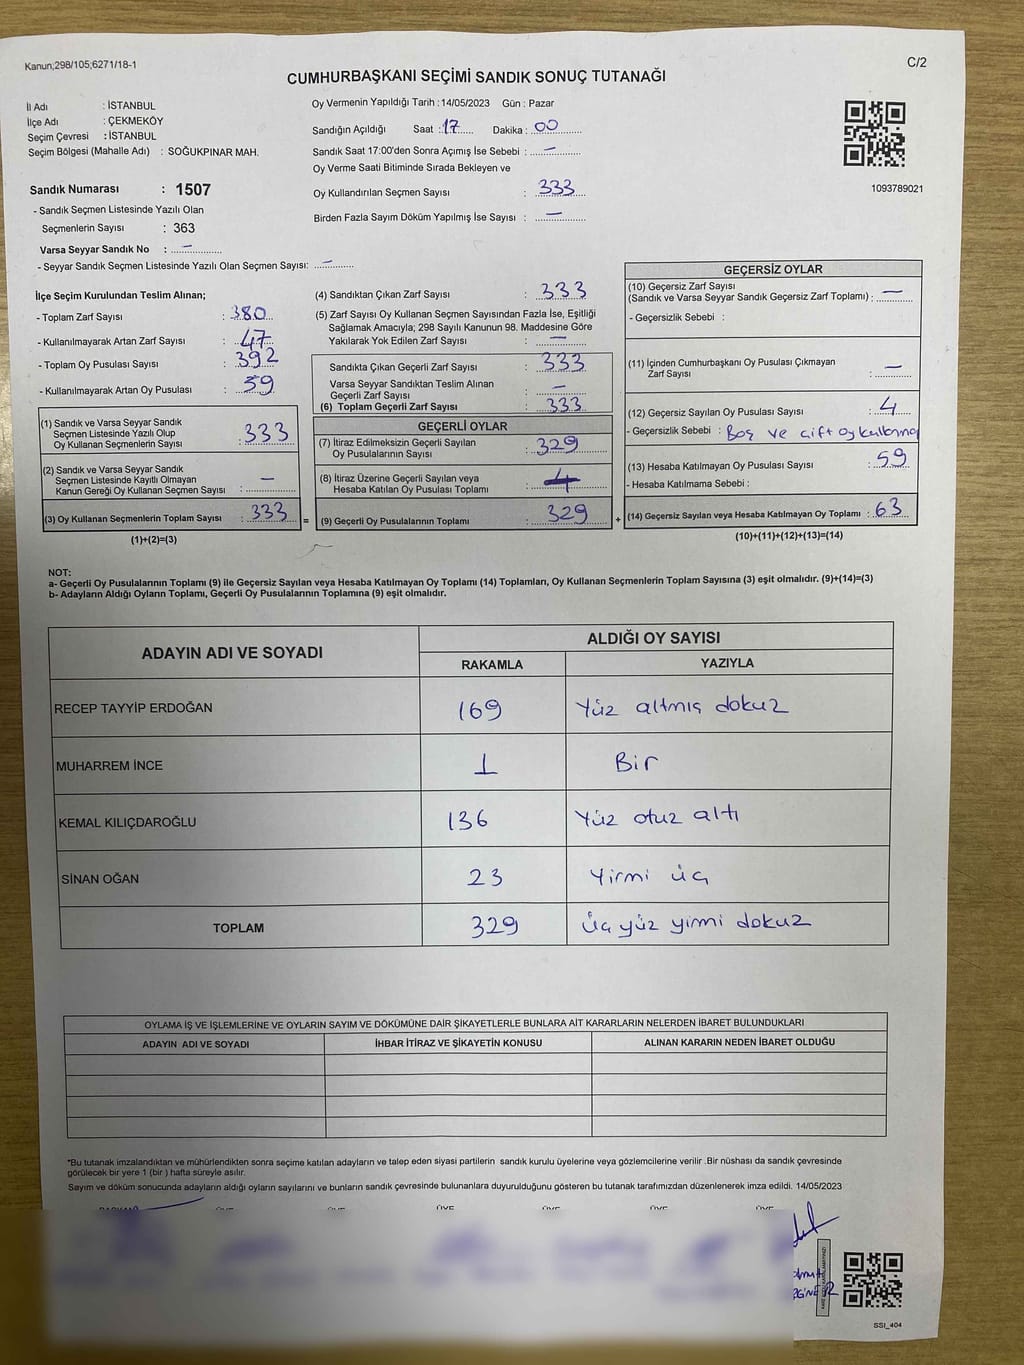 Kanun;298/105;6271/18-1
C/2
CUMHURBAŞKANI SEÇİMİ SANDIK SONUÇ TUTANAĞI
İl Adı : İSTANBUL
İlçe Adı : ÇEKMEKÖY
Seçim Çevresi : İSTANBUL
Seçim Bölgesi (Mahalle Adı) : SOĞUKPINAR MAH.
Sandık Numarası : 1507
- Sandık Seçmen Listesinde Yazılı Olan
Seçmenlerin Sayısı : 363
Varsa Seyyar Sandık No : –
- Seyyar Sandık Seçmen Listesinde Yazılı Olan Seçmen Sayısı: –
Oy Vermenin Yapıldığı Tarih : 14/05/2023 Gün : Pazar
Sandığın Açıldığı Saat : 17 Dakika : 00
Sandık Saat 17:00'den Sonra Açımış İse Sebebi : –
Oy Verme Saati Bitiminde Sırada Bekleyen ve
Oy Kullandırılan Seçmen Sayısı : 333
Birden Fazla Sayım Döküm Yapılmış İse Sayısı : –
1093789021
İlçe Seçim Kurulundan Teslim Alınan;
- Toplam Zarf Sayısı : 380
- Kullanılmayarak Artan Zarf Sayısı : 47
- Toplam Oy Pusulası Sayısı : 392
- Kullanılmayarak Artan Oy Pusulası : 59
(1) Sandık ve Varsa Seyyar Sandık
Seçmen Listesinde Yazılı Olup
Oy Kullanan Seçmenlerin Sayısı : 333
(2) Sandık ve Varsa Seyyar Sandık
Seçmen Listesinde Kayıtlı Olmayan
Kanun Gereği Oy Kullanan Seçmen Sayısı : –
(3) Oy Kullanan Seçmenlerin Toplam Sayısı : 333
(1)+(2)=(3)
(4) Sandıktan Çıkan Zarf Sayısı : 333
(5) Zarf Sayısı Oy Kullanan Seçmen Sayısından Fazla İse, Eşitliği
Sağlamak Amacıyla; 298 Sayılı Kanunun 98. Maddesine Göre
Yakılarak Yok Edilen Zarf Sayısı : –
Sandıkta Çıkan Geçerli Zarf Sayısı : 333
Varsa Seyyar Sandıktan Teslim Alınan
Geçerli Zarf Sayısı : –
(6) Toplam Geçerli Zarf Sayısı : 333
GEÇERLİ OYLAR
(7) İtiraz Edilmeksizin Geçerli Sayılan
Oy Pusulalarının Sayısı : 329
(8) İtiraz Üzerine Geçerli Sayılan veya
Hesaba Katılan Oy Pusulası Toplamı : 4
= (9) Geçerli Oy Pusulalarının Toplamı : 329 +
GEÇERSİZ OYLAR
(10) Geçersiz Zarf Sayısı
(Sandık ve Varsa Seyyar Sandık Geçersiz Zarf Toplamı) : –
- Geçersizlik Sebebi :
(11) İçinden Cumhurbaşkanı Oy Pusulası Çıkmayan
Zarf Sayısı : –
(12) Geçersiz Sayılan Oy Pusulası Sayısı : 4
- Geçersizlik Sebebi : Boş ve çift oy kullanma
(13) Hesaba Katılmayan Oy Pusulası Sayısı : 59
- Hesaba Katılmama Sebebi :
(14) Geçersiz Sayılan veya Hesaba Katılmayan Oy Toplamı : 63
(10)+(11)+(12)+(13)=(14)
NOT:
a- Geçerli Oy Pusulalarının Toplamı (9) ile Geçersiz Sayılan veya Hesaba Katılmayan Oy Toplamı (14) Toplamları, Oy Kullanan Seçmenlerin Toplam Sayısına (3) eşit olmalıdır. (9)+(14)=(3)
b- Adayların Aldığı Oyların Toplamı, Geçerli Oy Pusulalarının Toplamına (9) eşit olmalıdır.
ADAYIN ADI VE SOYADI ALDIĞI OY SAYISI
RAKAMLA YAZIYLA
RECEP TAYYİP ERDOĞAN 169 Yüz altmış dokuz
MUHARREM İNCE 1 Bir
KEMAL KILIÇDAROĞLU 136 Yüz otuz altı
SİNAN OĞAN 23 Yirmi üç
TOPLAM 329 Üç yüz yirmi dokuz
OYLAMA İŞ VE İŞLEMLERİNE VE OYLARIN SAYIM VE DÖKÜMÜNE DAİR ŞİKAYETLERLE BUNLARA AİT KARARLARIN NELERDEN İBARET BULUNDUKLARI
ADAYIN ADI VE SOYADI İHBAR İTİRAZ VE ŞİKAYETİN KONUSU ALINAN KARARIN NEDEN İBARET OLDUĞU
*Bu tutanak imzalandıktan ve mühürlendikten sonra seçime katılan adayların ve talep eden siyasi partilerin sandık kurulu üyelerine veya gözlemcilerine verilir .Bir nüshası da sandık çevresinde
görülecek bir yere 1 (bir ) hafta süreyle asılır.
Sayım ve döküm sonucunda adayların aldığı oyların sayılarını ve bunların sandık çevresinde bulunanlara duyurulduğunu gösteren bu tutanak tarafımızdan düzenlenerek imza edildi. 14/05/2023
BAŞKAN ÜYE ÜYE ÜYE ÜYE ÜYE ÜYE
SSI_404